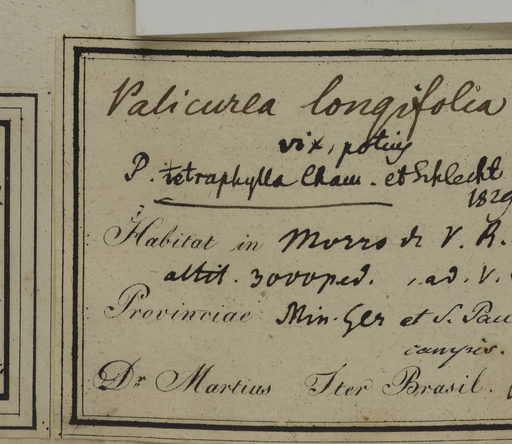 Palicurea longifolia
vix, potius
P. tetraphylla Cham. et Schlecht
1829
Habitat in Morro de V. R.
altit. 3000 ped. , ad. V.
Provinciae Min. Ger et S. Pau
campis.
Dr. Martius Iter Brasil.